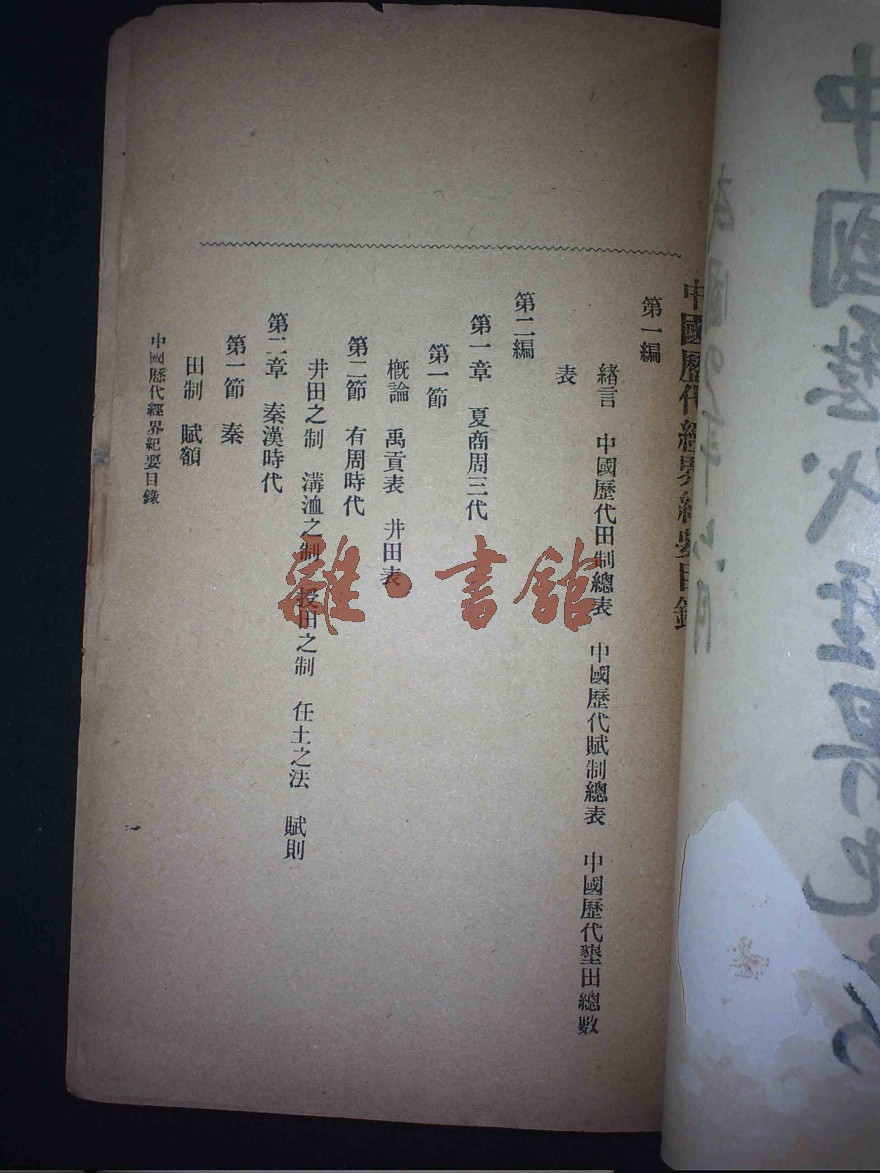 中國歷代經界紀要目錄
第一編
緒言　中國歷代田制總表　中國歷代賦制總表　中國歷代墾田總數
表
第二編
第一章　夏商周三代
第一節
概論　禹貢表　井田表
第二節　有周時代
井田之制　溝洫之制　授田之制　任土之法　賦則
第二章　秦漢時代
第一節　秦
田制　賦額
中國歷代經界紀要目錄
雜·書館